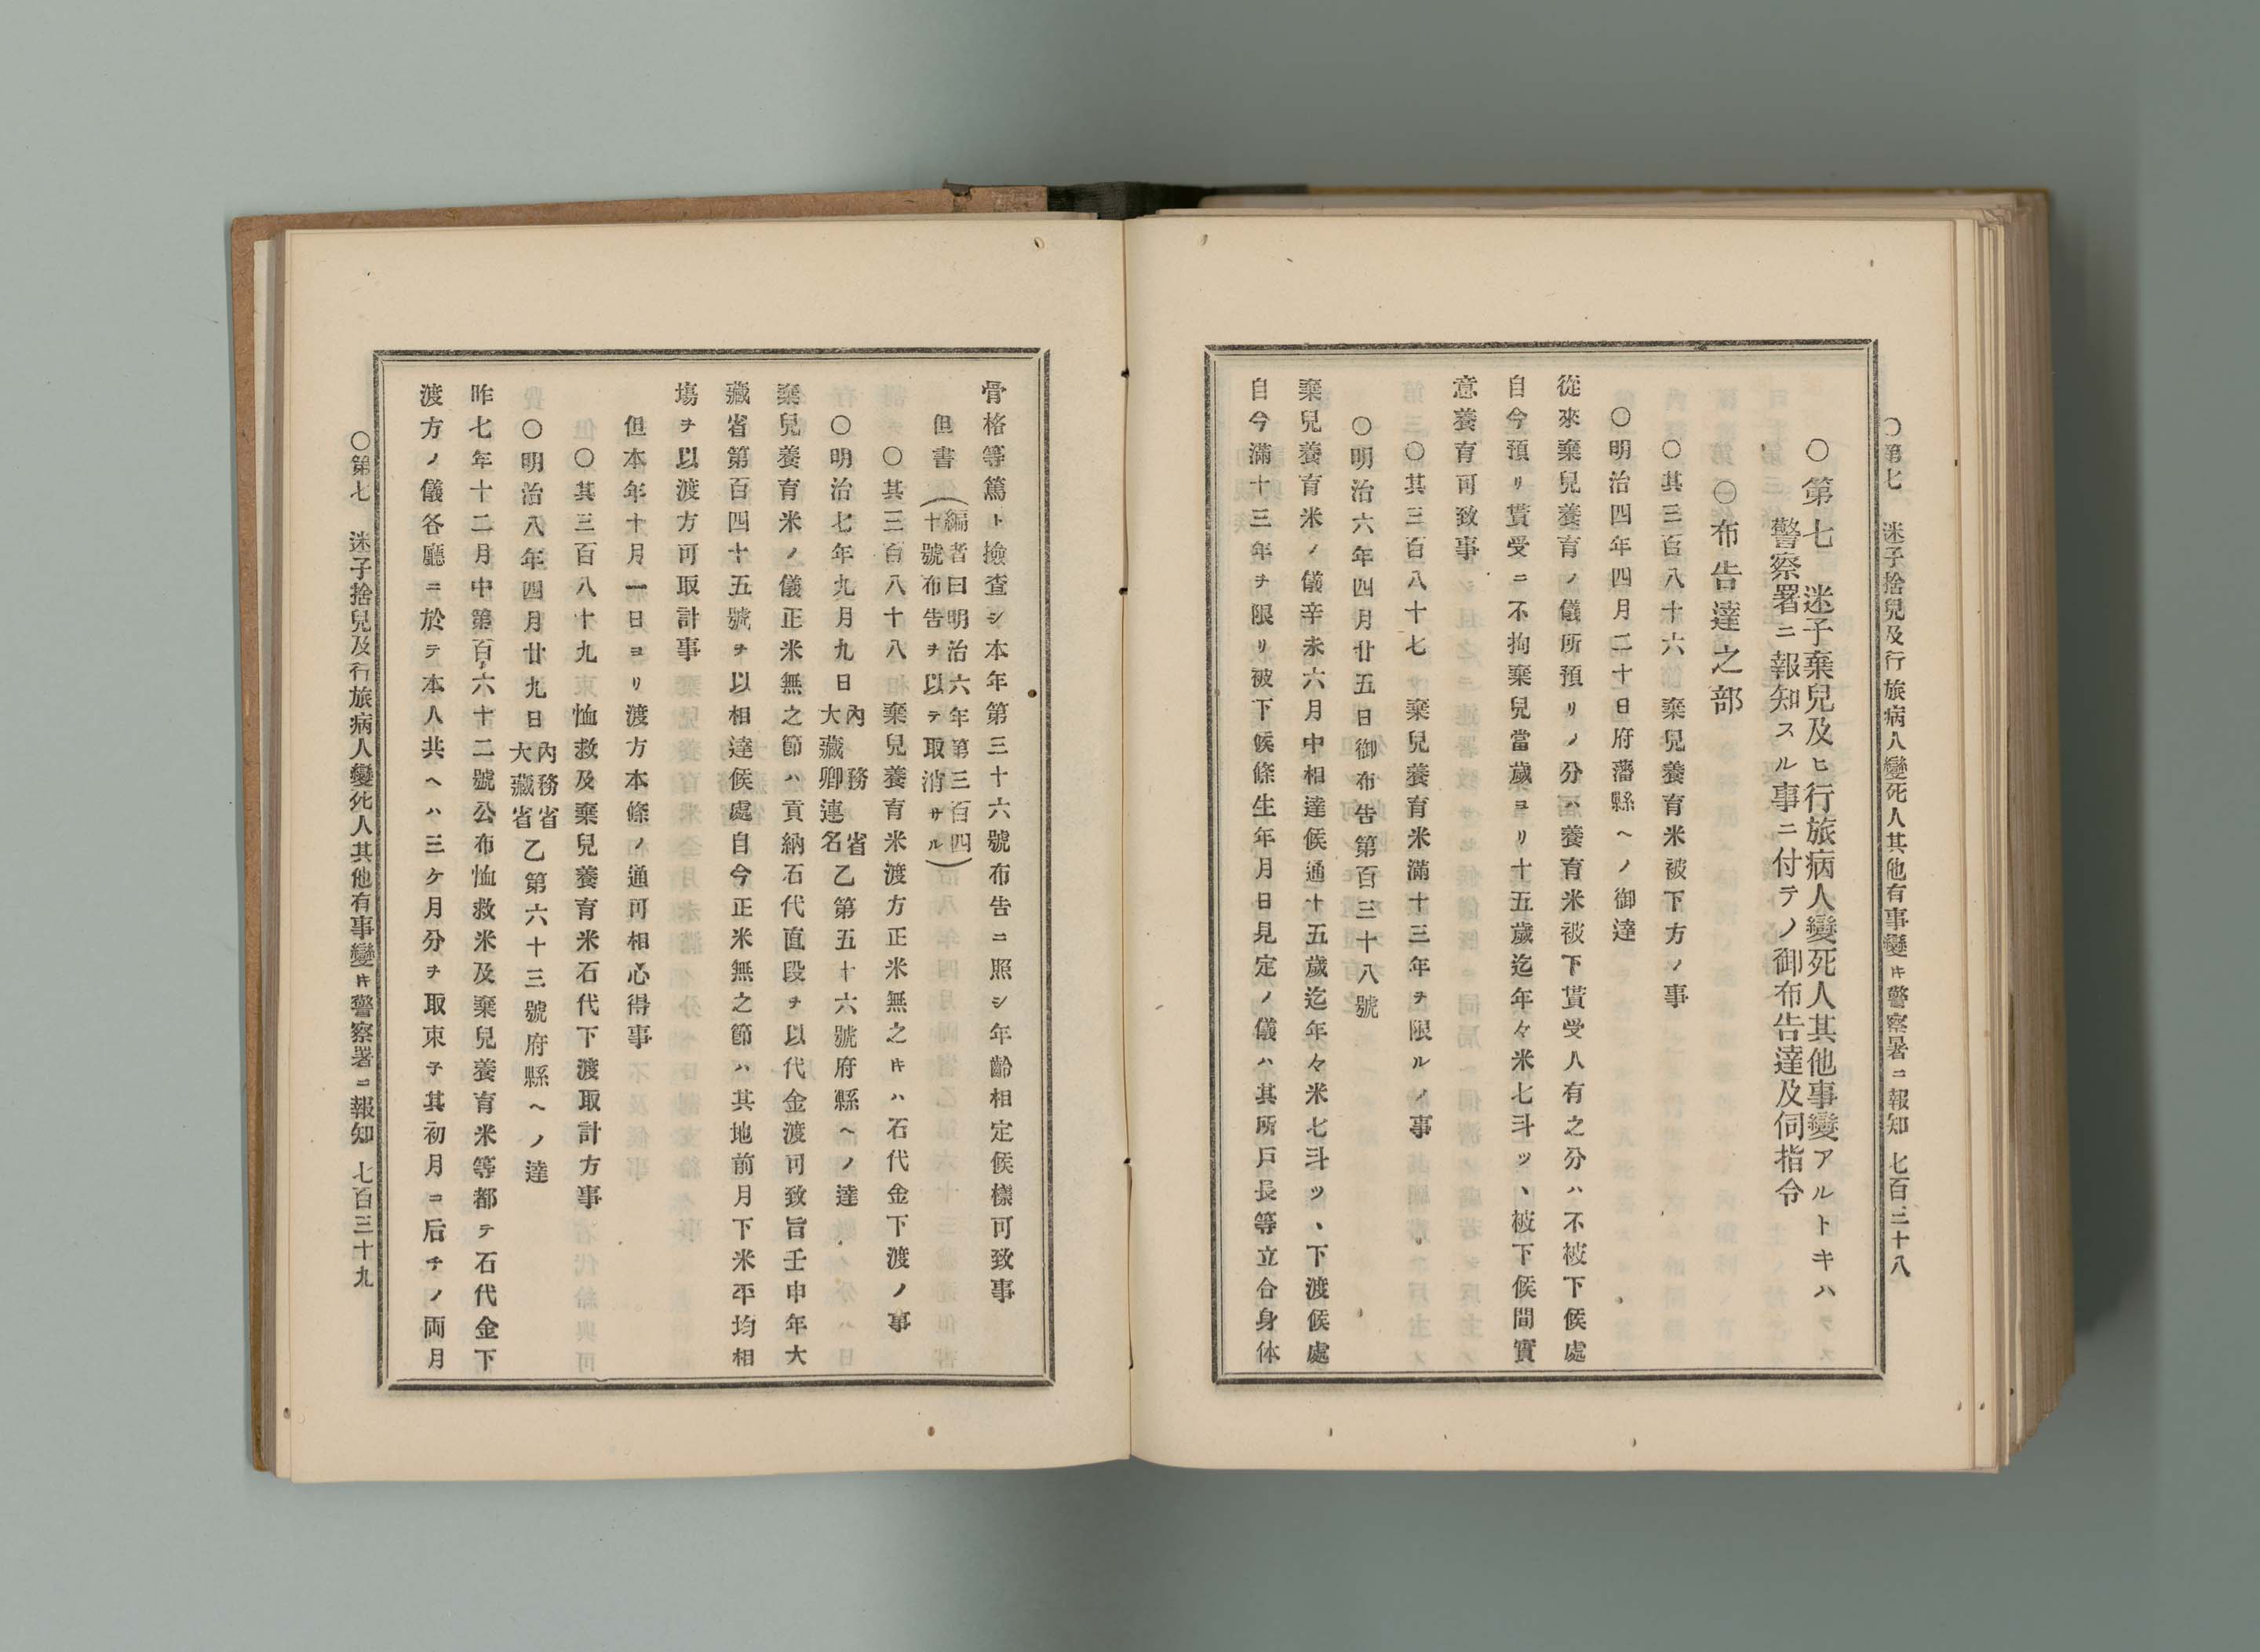 〇第七 迷子捨兒及行旅病人變死人其他有事變𪜈警察署ニ報知 七百三十八
〇第七 迷子棄兒及ヒ行旅病人變死人其他事變アルトキハ
警察署ニ報知スル事ニ付テノ御布告達及伺指令
〇布告達之部
〇其三百八十六 棄兒養育米被下方ノ事
〇明治四年四月二十日府藩縣ヘノ御達
從來棄兒養育ノ儀所預リノ分ハ養育米被下貰受人有之分ハ不被下候處
自今預リ貰受ニ不拘棄兒當歲ヨリ十五歲迄年々米七斗ツヽ被下候間實
意養育可致事
〇其三百八十七 棄兒養育米滿十三年ヲ限ルノ事
〇明治六年四月廿五日御布告第百三十八號
棄兒養育米ノ儀辛未六月中相達候通十五歲迄年々米七斗ツヽ下渡候處
自今滿十三年ヲ限リ被下候條生年月日見定ノ儀ハ其所戸長等立合身体
骨格等篤ト撿査シ本年第三十六號布告ニ照シ年齡相定候樣可致事
但書(編者曰明治六年第三百四
十號布告ヲ以テ取消サル)
〇其三百八十八 棄兒養育米渡方正米無之𪜈ハ石代金下渡ノ事
〇明治七年九月九日內務省大藏卿連名乙第五十六號府縣ヘノ達
棄兒養育米ノ儀正米無之節ハ貢納石代直段ヲ以代金渡可致旨壬申年大
藏省第百四十五號ヲ以相達候處自今正米無之節ハ其地前月下米平均相
塲ヲ以渡方可取計事
但本年十月一日ヨリ渡方本條ノ通可相心得事
〇其三百八十九 恤救及棄兒養育米石代下渡取計方事
〇明治八年四月廿九日內務省大藏省乙第六十三號府縣ヘノ達
昨七年十二月中第百六十二號公布恤救米及棄兒養育米等都テ石代金下
渡方ノ儀各廳ニ於テ本人共ヘハ三ケ月分ヲ取束子其初月ニ后チノ両月
〇第七 迷子捨兒及行旅病人變死人其他有事變𪜈警察署ニ報知 七百三十九